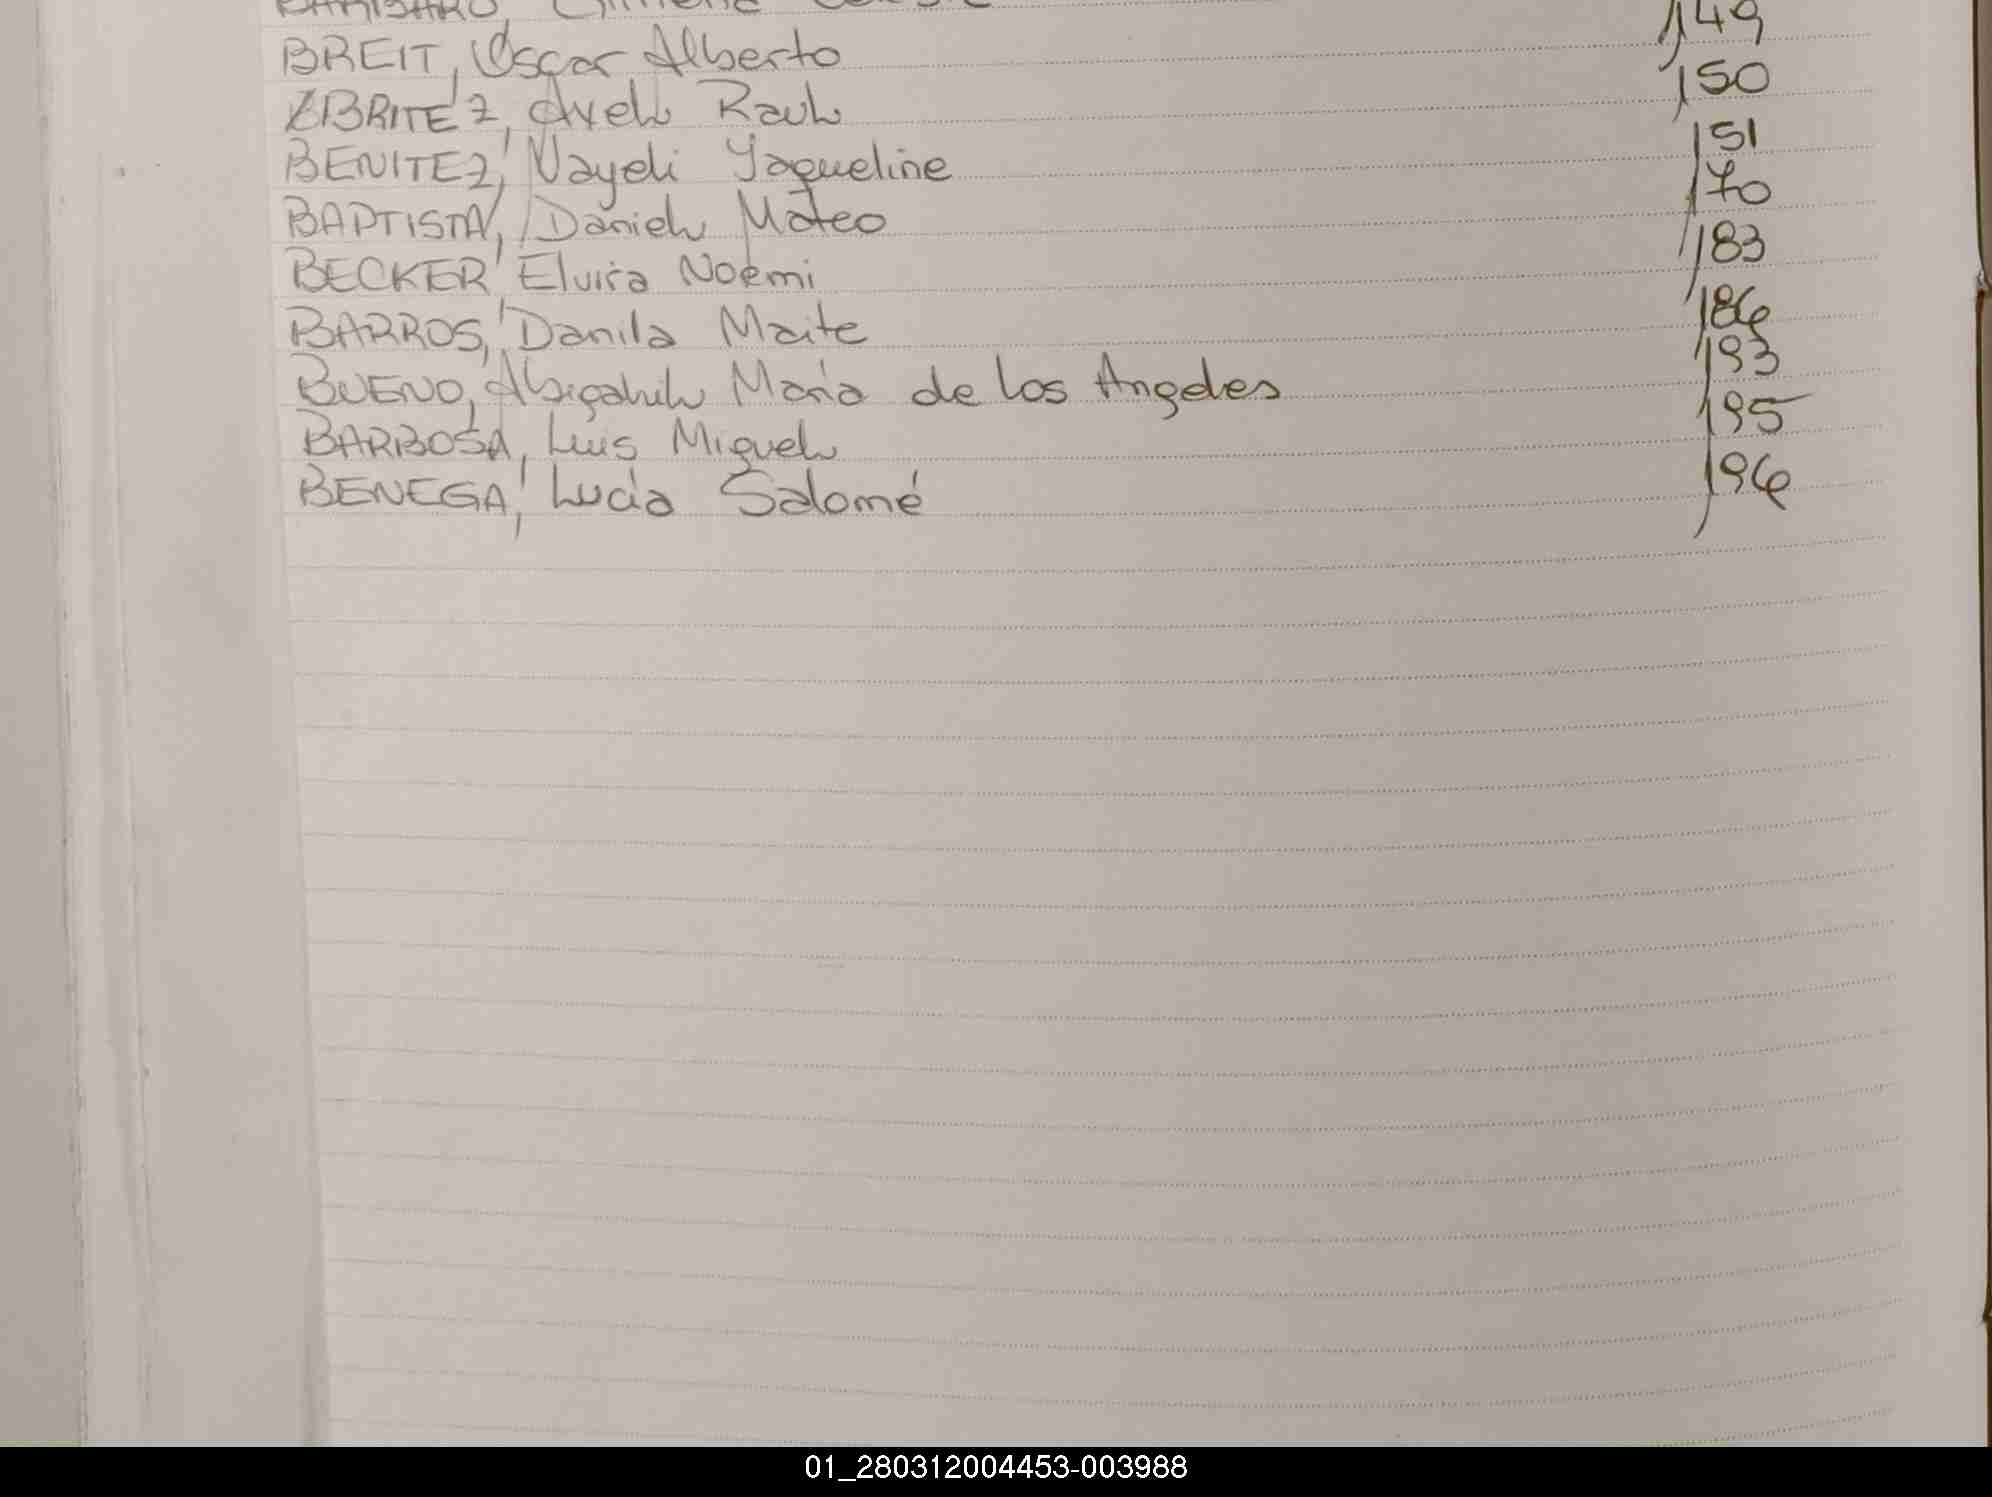 BREIT, Oscar Alberto 149
BRITEZ, Axel Raul 150
BENITEZ, Nayeli Yaqueline 151
BAPTISTA, Daniel Mateo 170
BECKER, Elvira Noemi 183
BARROS, Danila Maite 186
BUENO, Abigahil María de los Angeles 193
BARBOSA, Luis Miguel 195
BENEGA, Lucía Salomé 196
01_280312004453-003988